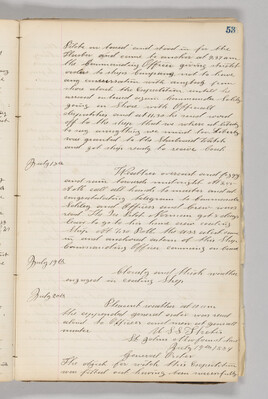 53
Pilot on board and stood in for the
Harbor and came to anchor at
the Commanding Officer giving strict
orders to Ships Company not to have
any conversation with anybody from
shore about the Expedition until it
around Commander Schley
going on Shore with Official
dispatches and at 11.30 he sent word
off to the ship that we were at liberty
to say anything we
was granted to the Starboard Watch
and got ship ready to receive Coal
July 18th
Weather overcast and foggy
and rain towards midnight At
8 all called all hands to muster and a
congratulating telegram to Commander
Schley and Officers and Crew were
read The Ice Pilot Norman got 2 days
leave to go to his home near
Ship
in and anchored astern of this Ship
Commanding Officer coming on board
July 19th
Cloudy and thick weather
engaged in coaling Ship
July 20th
Pleasant weather at 10 am
the appended general order was read
aloud to Officers and men at general
muster
U.S.S. Thetis
St Johns Newfound land
July 19th 1884
General Order
The object for which this Expedition
was fitted out having been successfully